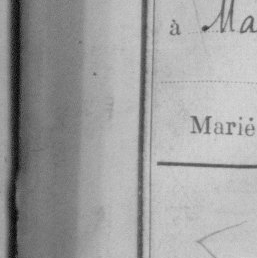 à Ma
Marié